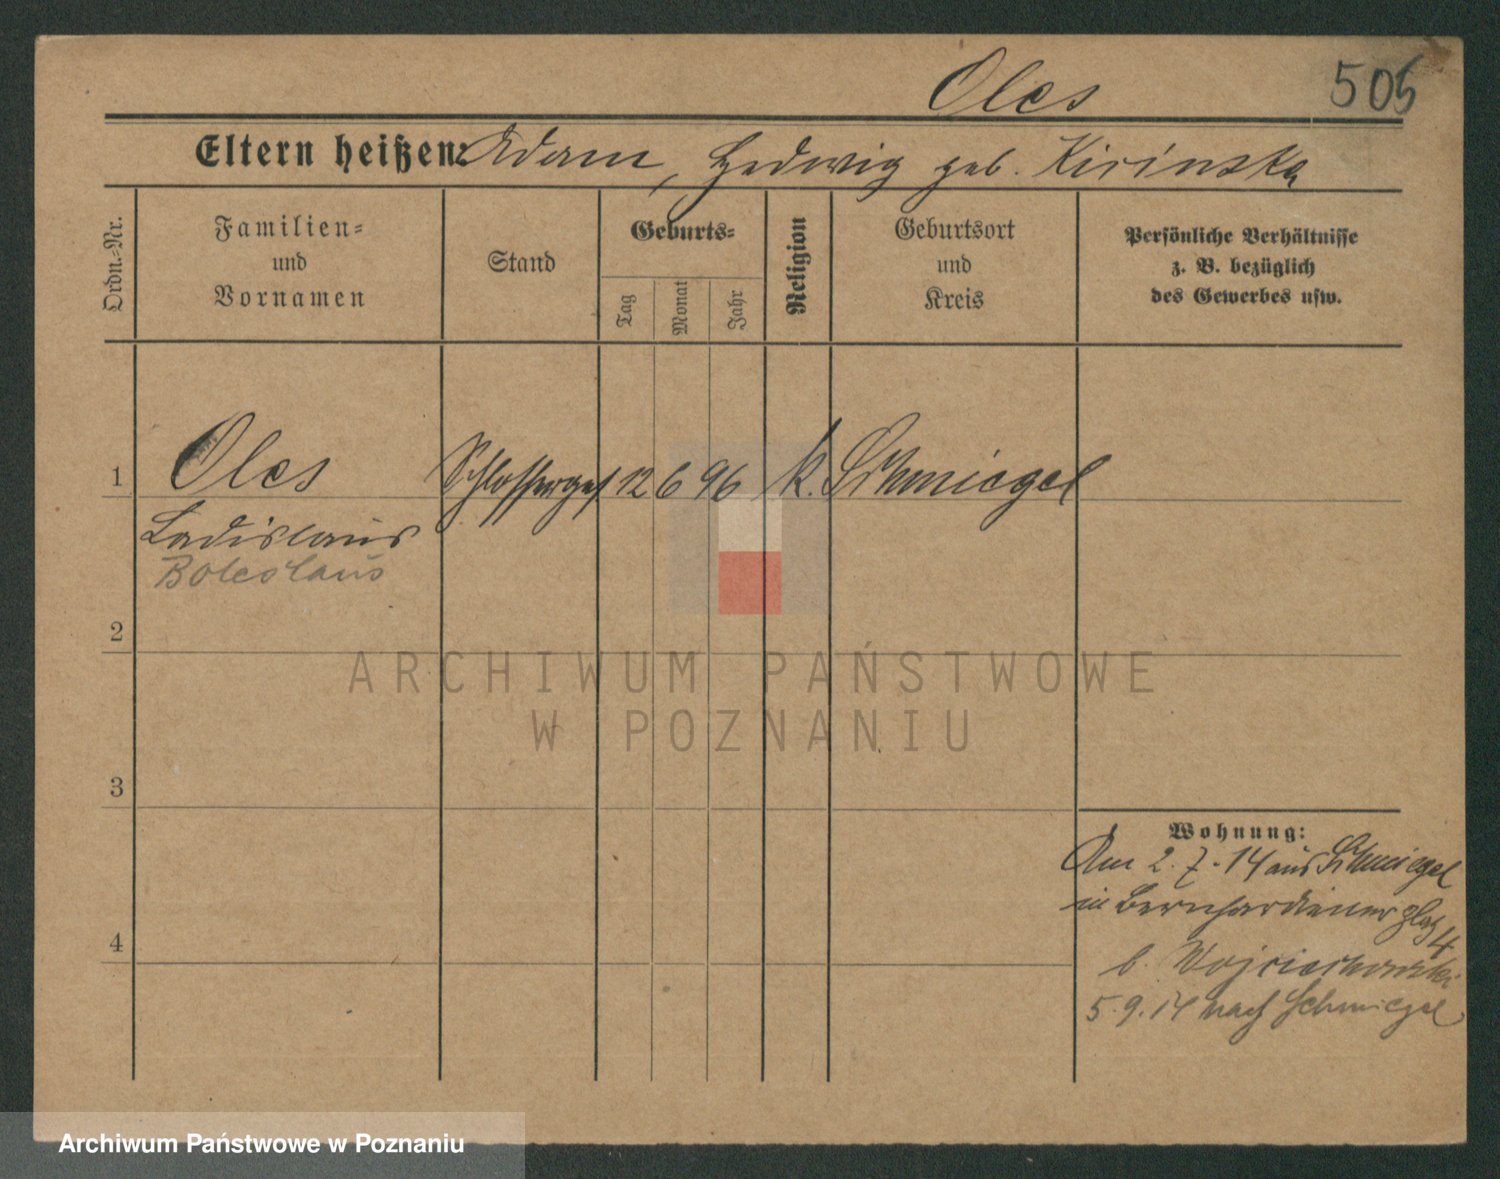 Oles
505
Eltern heißen: Adam, Hedwig geb. Kirinska
Ordn.-Nr.
Familien-
und
Vornamen
Stand
Geburts-
Tag
Monat
Jahr
Religion
Geburtsort
und
Kreis
Persönliche Verhältnisse
z. B. bezüglich
des Gewerbes usw.
1
Oles
Schlosserges
12
6
96
k.
Schmiegel
Ladislaus
Boleslaus
2
ARCHIWUM PAŃSTWOWE
W POZNANIU
3
Wohnung:
Am 2.7.14 aus Schmiegel
in Bernhardiner plaz
4
b. Wojciechowski
5.9.14 nach Schmiegel
4
Archiwum Państwowe w Poznaniu